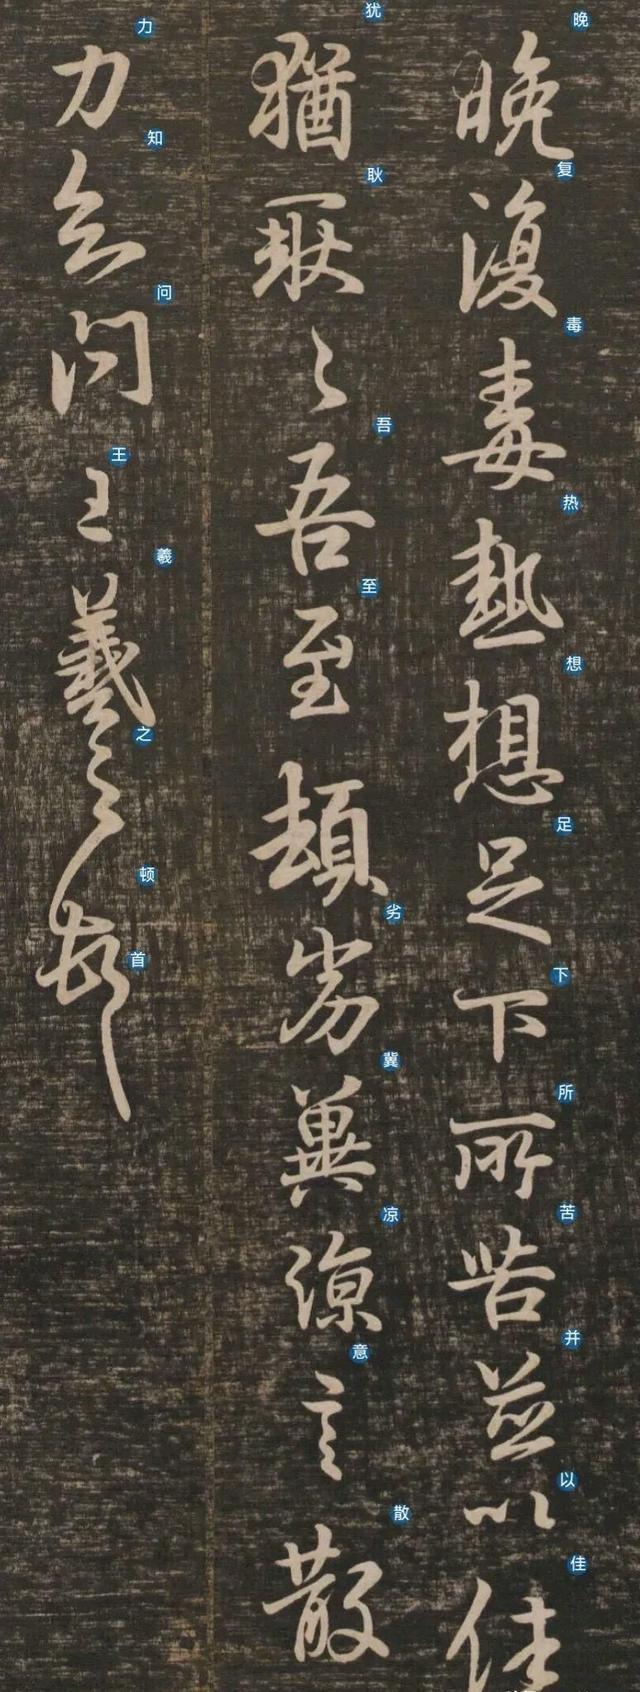 晚復毒熱想足下所苦並以佳
晚复毒热想足下所苦并以佳
猶耿〻吾至頓劣冀涼言散
犹耿吾至劣冀凉意散
力知問王羲之頓首
力知问王羲之顿首